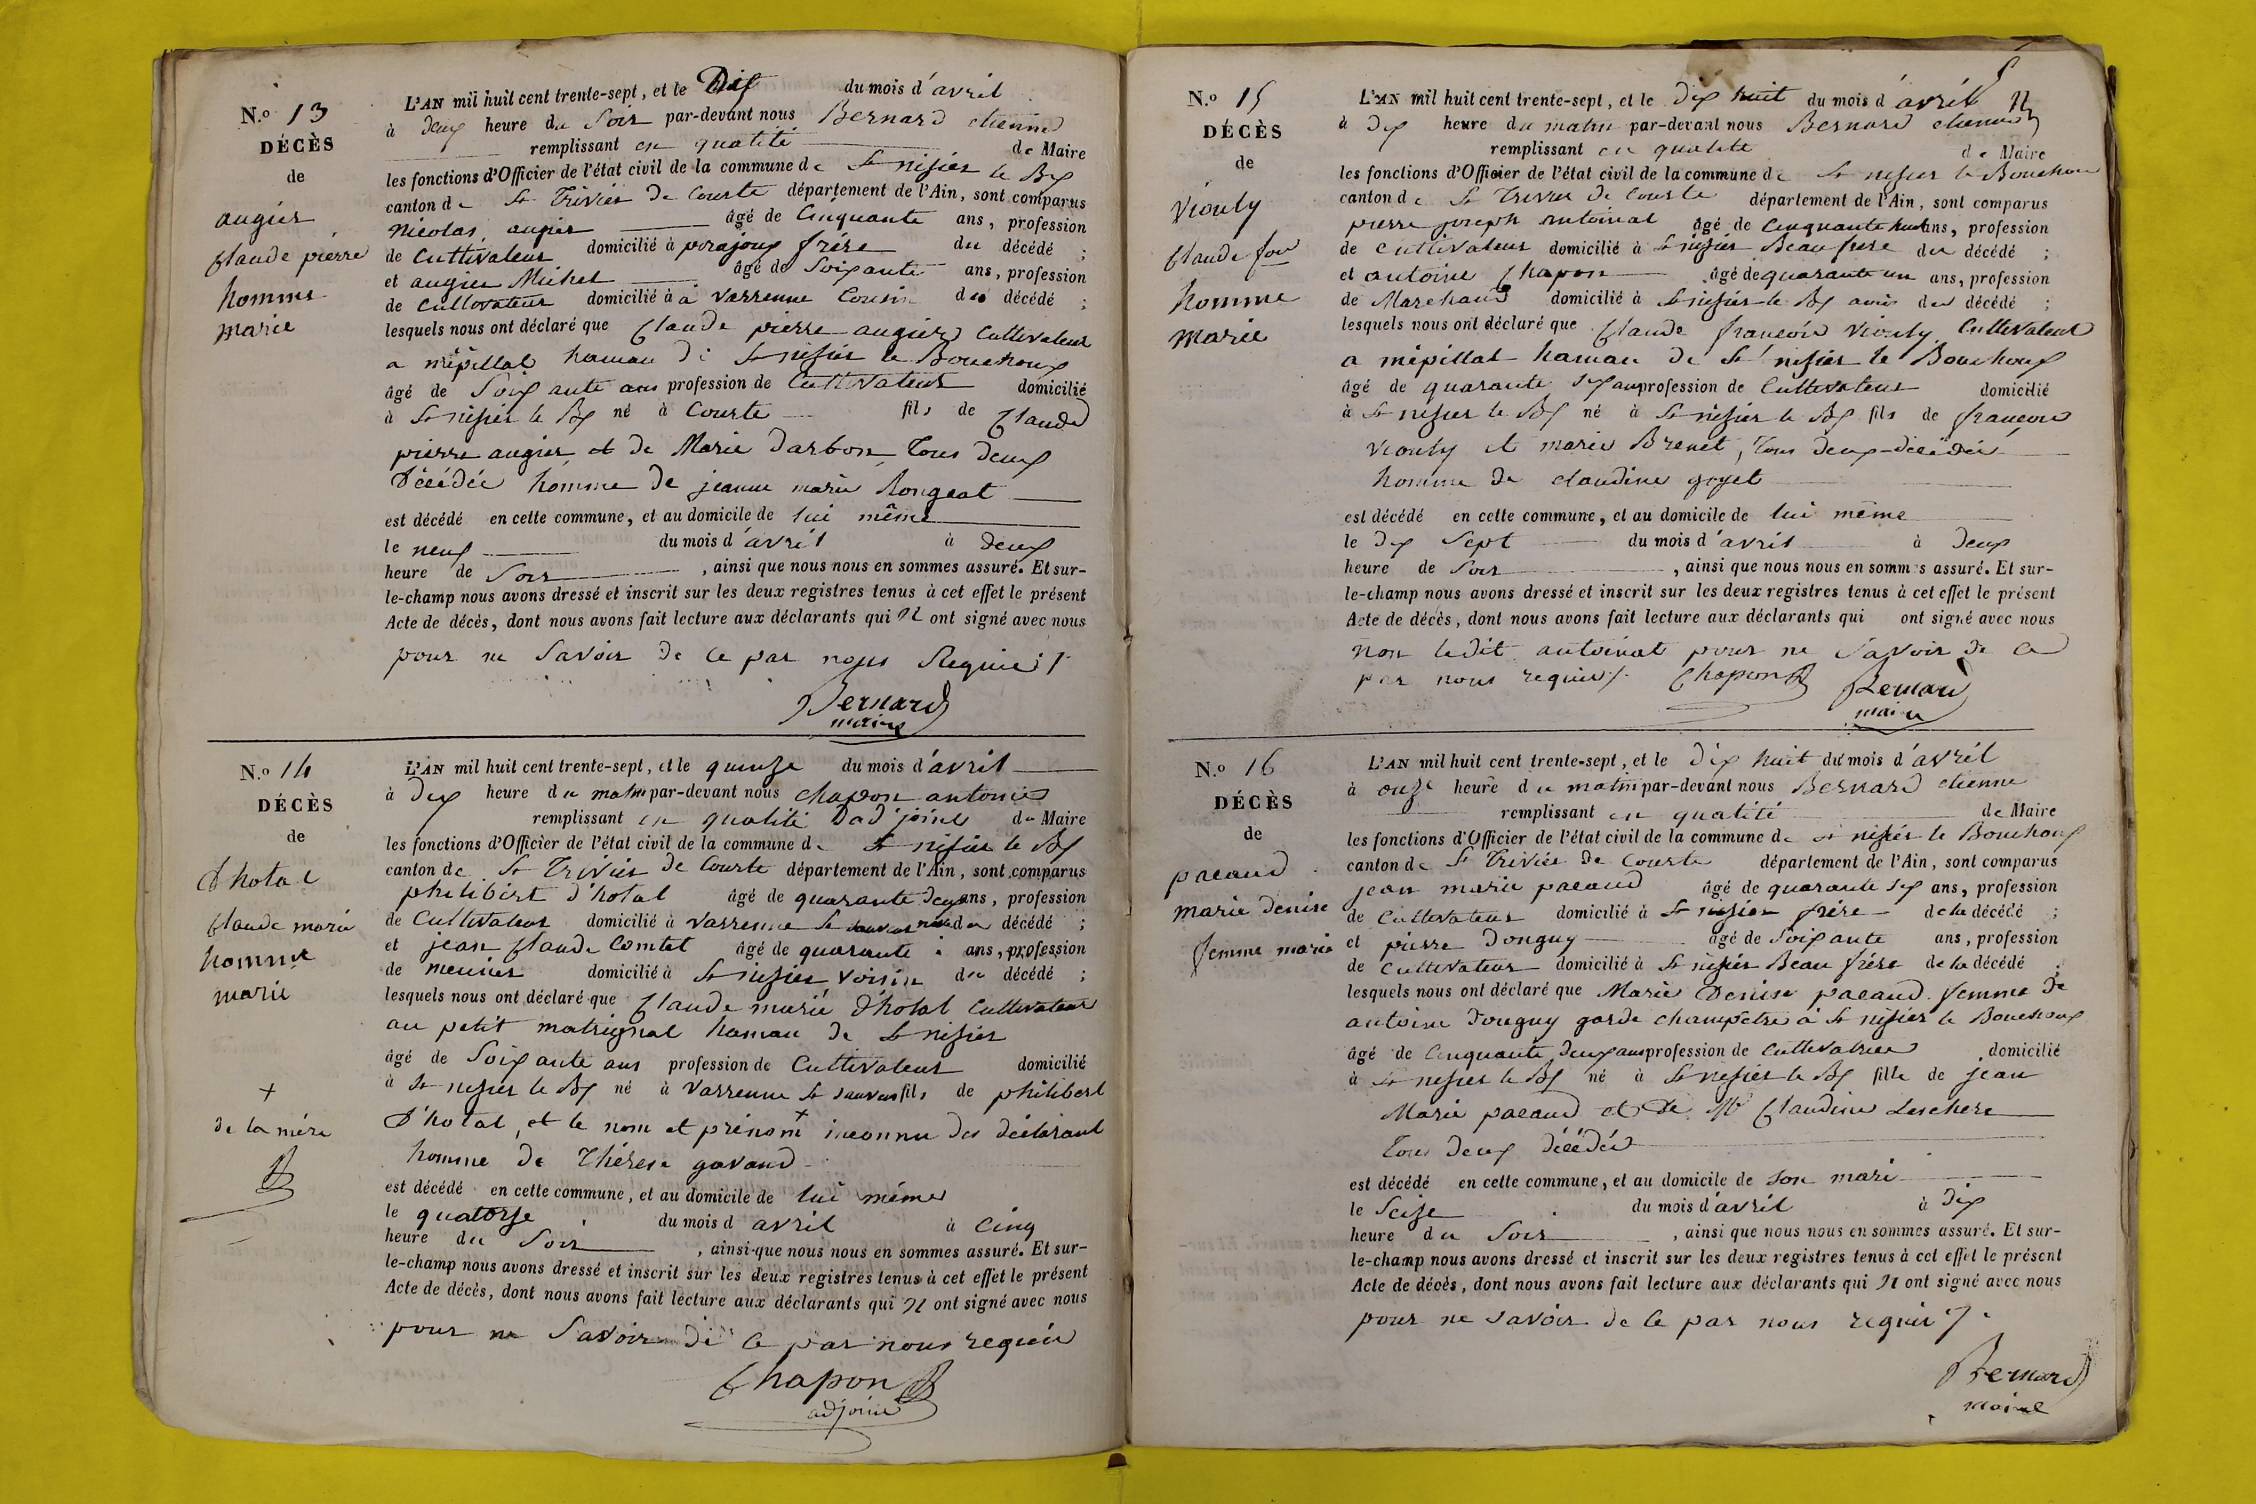 N.o 13
DÉCÈS
de
augier
Claude pierre
homme
marie
L'AN mil huit cent trente-sept, et le Dix du mois d'avril
à deux heure du Soir par-devant nous Bernard etienne
remplissant en qualité de Maire
les fonctions d'Officier de l'état civil de la commune de St nisier le Bx
canton de St Trivier de Courte département de l'Ain, sont comparus
Nicolas augier âgé de Cinquante ans, profession
de Cultivateur domicilié à frére du décédé ;
et augier Michel âgé de Soixante ans, profession
de Cultivateur domicilié à à Varrenne Cousin du décédé ;
lesquels nous ont déclaré que Claude pierre augier Cultivateur
a mépillat hamau de St nisier le Bouchoux
âgé de Soixante ans profession de Cultivateur domicilié
à St nisier le Bx né à Courte fils de Claude
pierre augier et de Marie Darbon Tous deux
Décédée homme de jeanne marie Rongeat
est décédé en cette commune, et au domicile de lui même
le neuf du mois d'avril à deux
heure de Soir , ainsi que nous nous en sommes assuré. Et sur-
le-champ nous avons dressé et inscrit sur les deux registres tenus à cet effet le présent
Acte de décès, dont nous avons fait lecture aux déclarants qui n ont signé avec nous
pour ne Savoir de ce par nous Requis
Bernard
maire
N.o 14
DÉCÈS
de
D'hotal
Claude marie
homme
marie
+
de la mére
L'AN mil huit cent trente-sept, et le quinze du mois d'avril
à Dix heure du matin par-devant nous chapon antoine
remplissant en qualité Dadjoint de Maire
les fonctions d'Officier de l'état civil de la commune de St nisier le Bx
canton de St Trivier de Courte département de l'Ain, sont comparus
philibert d'hotal âgé de quarante deux ans, profession
de Cultivateur domicilié à Varrenne St sauveur du décédé ;
et jean Claude Comtet âgé de quarante ans, profession
de meunier domicilié à St nisier voisin du décédé ;
lesquels nous ont déclaré que Claude marie d'hotal Cultivateur
au petit matrignat hamau de St nisier
âgé de Soixante ans profession de Cultivateur domicilié
à St nisier le Bx né à Varrenne St sauveur fils de philibert
D'hotal, et le nom et prénom + inconnu des déclarant
homme de Thérese gavand
est décédé en cette commune, et au domicile de lui même
le quatorze du mois d avril à Cinq
heure du Soir , ainsi que nous nous en sommes assuré. Et sur-
le-champ nous avons dressé et inscrit sur les deux registres tenus à cet effet le présent
Acte de décès, dont nous avons fait lecture aux déclarants qui n ont signé avec nous
pour ne Savoir de ce par nous requis
Chapon
adjoint
N.o 15
DÉCÈS
de
Viouly
Claude fois
homme
Marie
L'AN mil huit cent trente-sept, et le dix huit du mois d'avril
à dix heure du matin par-devant nous Bernard etienne
remplissant en qualité de Maire
les fonctions d'Officier de l'état civil de la commune de St nisier le Bouchoux
canton de St Trivier de Courte département de l'Ain, sont comparus
pierre joseph antoinat âgé de Cinquante huit ans, profession
de Cultivateur domicilié à St nisier Beau frere du décédé ;
et antoine Chapon âgé de quarante un ans, profession
de Marchand domicilié à St nisier le Bx ami du décédé ;
lesquels nous ont déclaré que Claude françois Viouly Cultivateur
a mépillat hamau de St nisier le Bouchoux
âgé de quarante six ans profession de Cultivateur domicilié
à St nisier le Bx né à St nisier le Bx fils de françois
Viouly et marie Brenet, Tous deux décédée
homme de claudine goyet
est décédé en cette commune, et au domicile de lui même
le dix Sept du mois d'avril à deux
heure de Soir , ainsi que nous nous en sommes assuré. Et sur-
le-champ nous avons dressé et inscrit sur les deux registres tenus à cet effet le présent
Acte de décès, dont nous avons fait lecture aux déclarants qui ont signé avec nous
non ledit antoinat pour ne Savoir de ce
par nous requis Chapon Bernard
maire
N.o 16
DÉCÈS
de
pacaud
Marie Denise
femme marie
L'AN mil huit cent trente-sept, et le dix huit du mois d'avril
à onze heure du matin par-devant nous Bernard etienne
remplissant en qualité de Maire
les fonctions d'Officier de l'état civil de la commune de St nisier le Bouchoux
canton de St Trivier de Courte département de l'Ain, sont comparus
jean marie pacaud âgé de quarante six ans, profession
de Cultivateur domicilié à St nisier frére de la décédé ;
et pierre Donguy âgé de Soixante ans, profession
de Cultivateur domicilié à St nisier Beau frére de la décédé ;
lesquels nous ont déclaré que Marie Denise pacaud femme de
antoine Donguy garde champétre à St nisier le Bouchoux
âgé de Cinquante deux ans profession de Cultivatrice domicilié
à St nisier le Bx né à St nisier le Bx fille de jean
Marie pacaud et de Claudine Leschere
Tous deux décédés
est décédé en cette commune, et au domicile de son mari
le Seize du mois d'avril à dix
heure du Soir , ainsi que nous nous en sommes assuré. Et sur-
le-champ nous avons dressé et inscrit sur les deux registres tenus à cet effet le présent
Acte de décès, dont nous avons fait lecture aux déclarants qui n ont signé avec nous
pour ne savoir de ce par nous requis
Bernard
maire